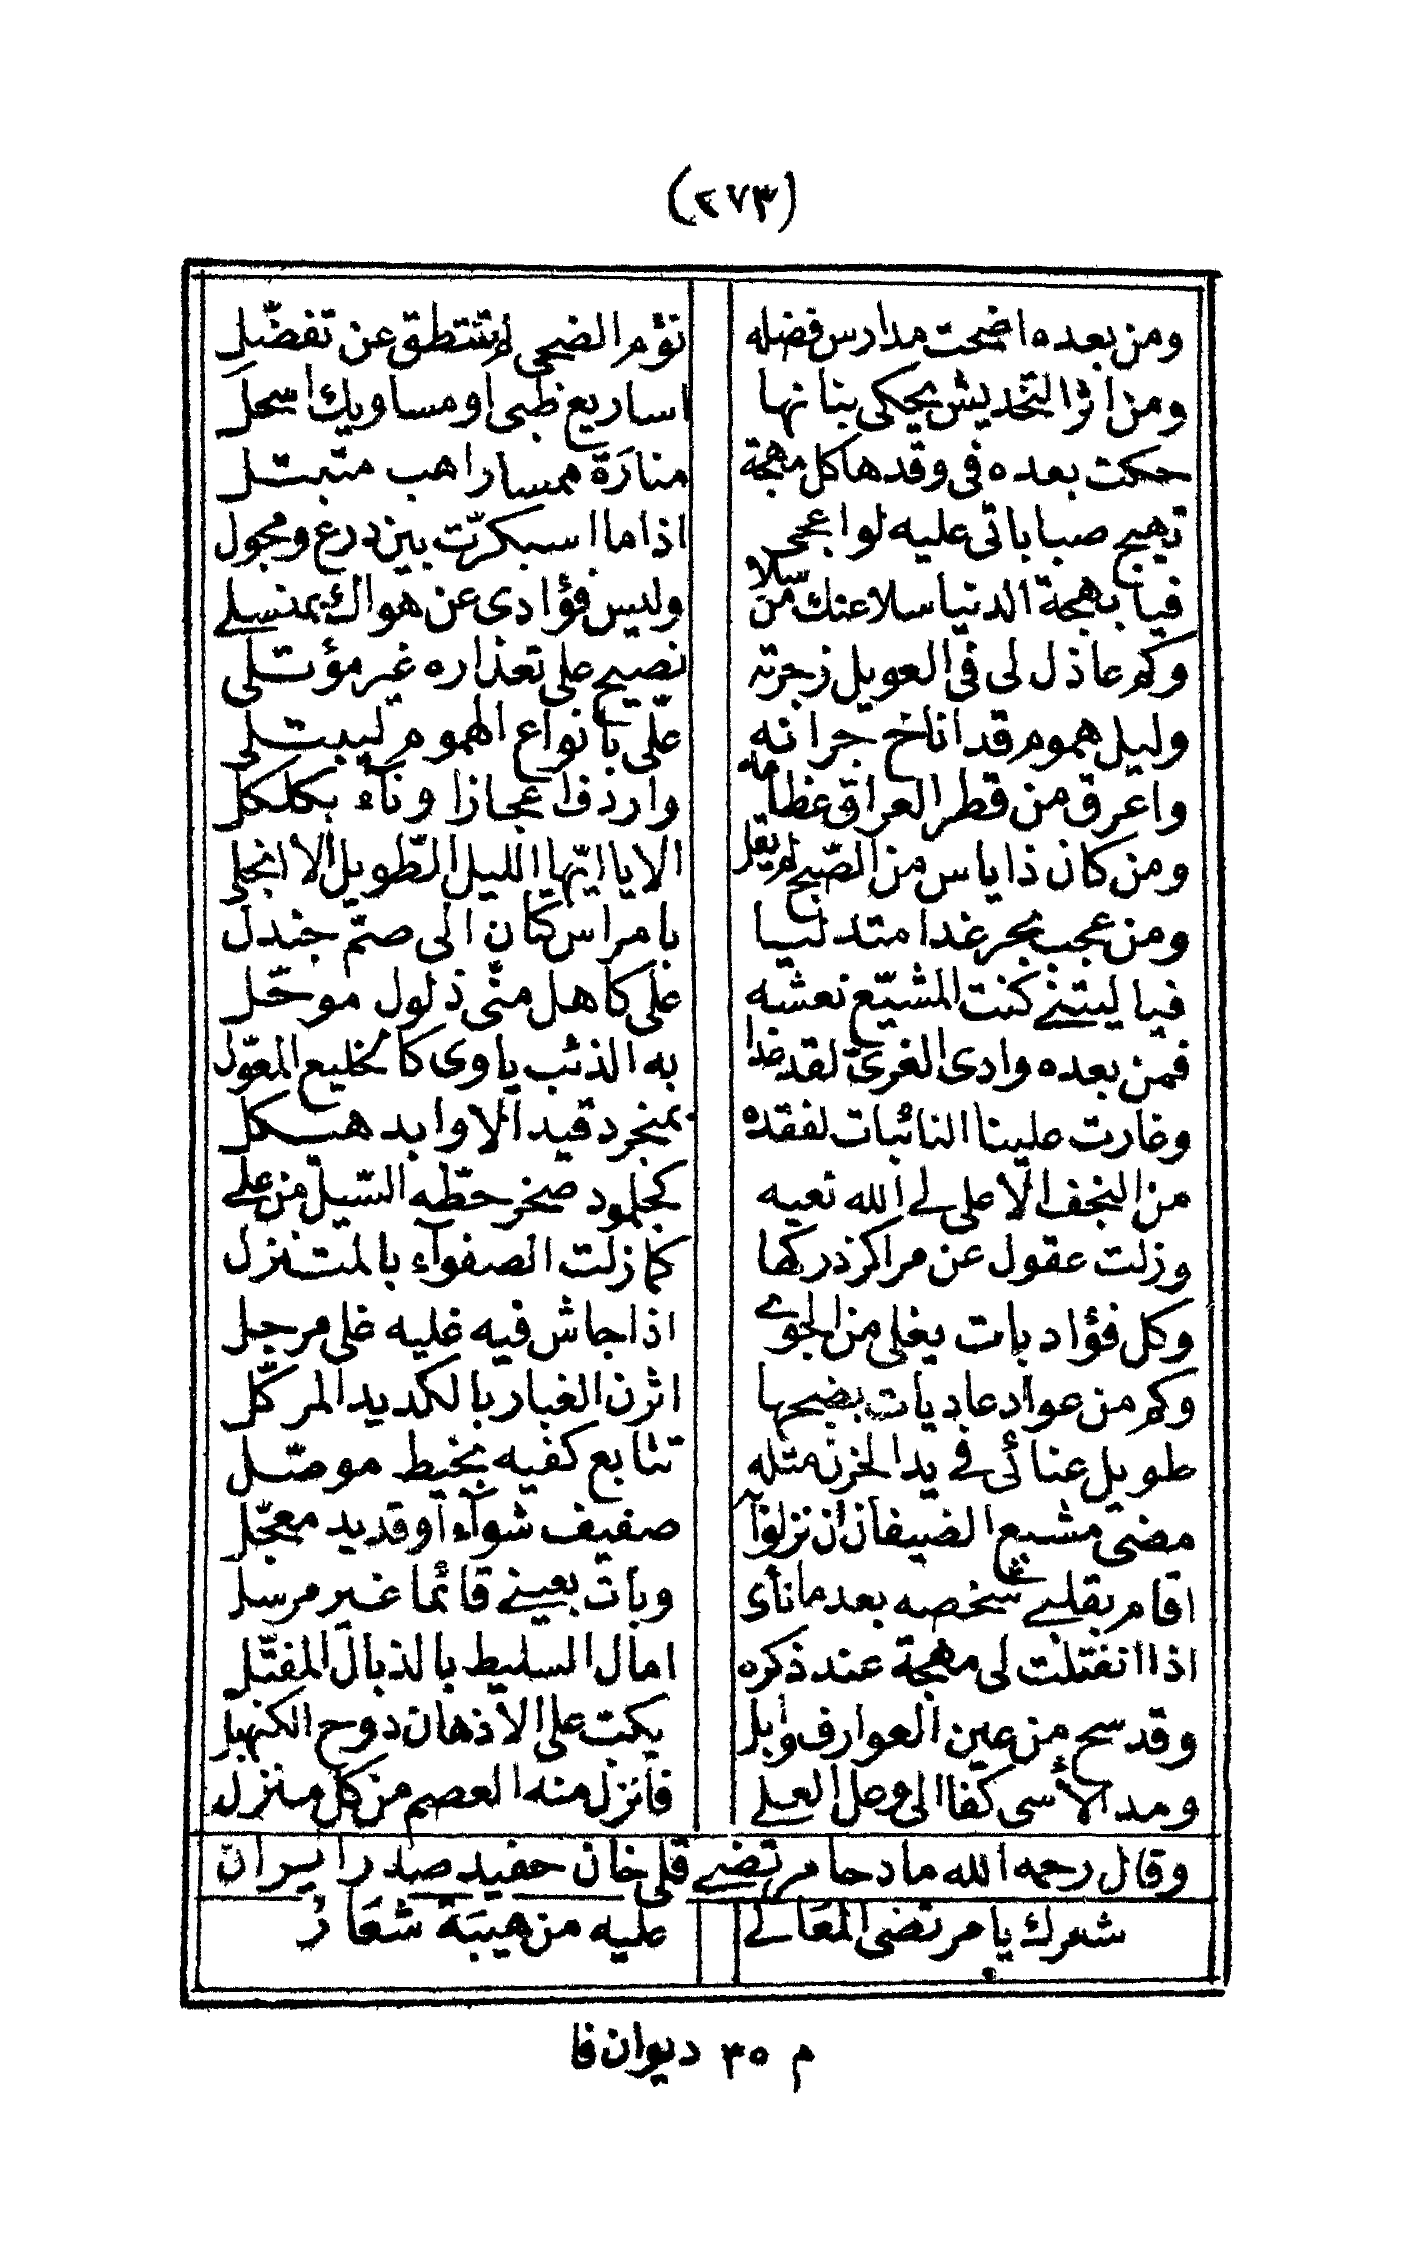 (٢٧٣)
ومن بعده اضحت مدارس فضله نؤم الضحى لم تنتطق عن تفضّل
ومن اثر التخديش يحكى بنانها اساريع ظبى او مساويك اسحل
حكت بعده فى وقدها كل مهجة منارة ممسا راهب متبتل
تهيج صباباتى عليه لواعجى اذا ما اسبكرّت بين درع ومجول
فيا بهجة الدنيا سلا عنك من سلا وليس فؤادى عن هواك بمنسلى
وكم عاذل لى فى العويل زجرته نصيح على تعذاره غير مؤتلى
وليل هموم قد اناخ جرانه علّى بانواع الهموم ليبتلى
واعرق من قطر العراق عظامه واردف اعجازا وناء بكلكل
ومن كان ذا ياس من الصّبح لم يقل الا يا ايّها الليل الطّويل الا انجلى
ومن عجب بحر غدا متدليا بامراس كتان الى صمّ جندل
فيا ليتنى كنت المشيّع نعشه على كاهل منّى ذلول موحّل
فمن بعده وادى الغرىّ لقد غدا به الذئب ياوى كالخليع المعوّل
وغارت علينا النائبات لفقده بمنجرد قيد الاوابد هيكل
من النجف الاعلى لى الله نعيه كجلمود صخر حطّه السّيل من على
وزلت عقول عن مراكز دركها كما زلت الصفواء بالمتنزل
وكل فؤاد بات يغلى من الجوى اذا جاش فيه غليه غلى مرجل
وكم من عواد عاديات بضبحها اثرن الغبار بالكديد المركّل
طويل عنائى فى يد الحزن مثله تتابع كفيه بخيط موصّل
مضى مشبع الضيفان ان نزلوا به صفيف شواء او قديد معجّل
اقام بقلبى شخصه بعد ما نأى وبات بعينى قائما غير مرسل
اذا انفتلت لى مهجة عند ذكره امال السليط بالذبال المفتّل
وقد سح من عين العوارف وابل يكب على الاذهان دوح الكنهبل
ومد الأسى كفا الى وعل العلى فانزل منه العصم من كل منزل
وقال رحمه الله مادحا مرتضى قلى خان حفيد صدر ايران
شعرك يا مرتضى المعالى عليه من هيبة شعار
م ٣٥ ديوان فا